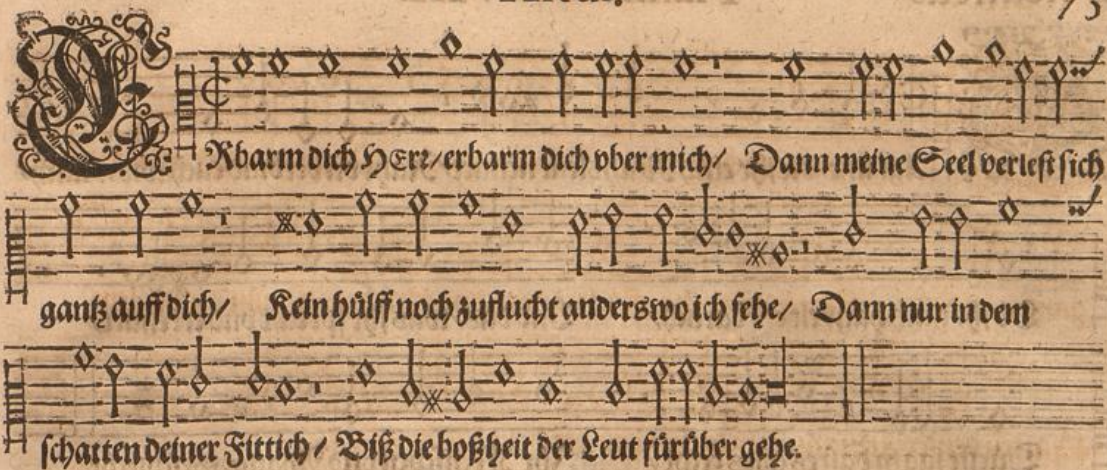 75
ERbarm dich HErr/erbarm dich vber mich/ Dann meine Seel verlest sich
gantz auff dich/ Kein hülff noch zuflucht anderswo ich sehe/ Dann nur in dem
schatten deiner Fittich/ Biß die boßheit der Leut fürüber gehe.